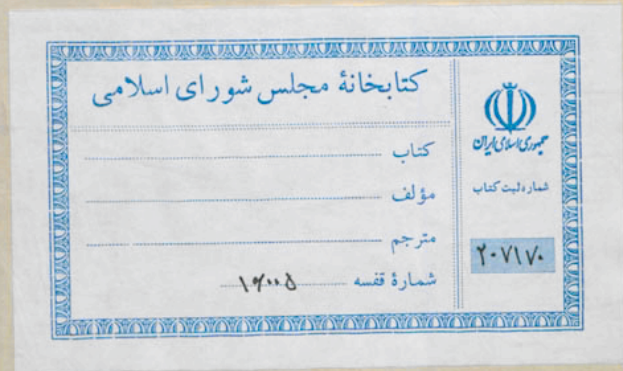 کتابخانهٔ مجلس شورای اسلامی
کتاب
مؤلف
مترجم
شمارهٔ قفسه ۱۶۰۰۵
جمهوری اسلامی ایران
شماره ثبت کتاب
۲۰۷۱۷۰